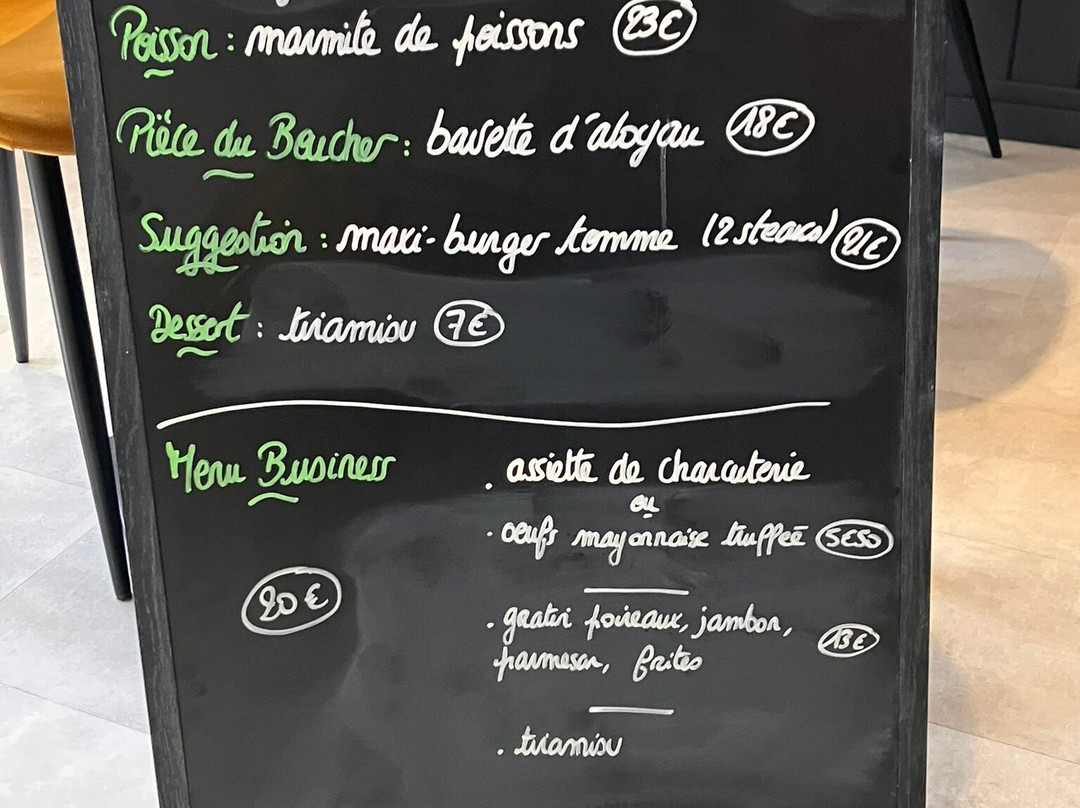 Poisson : marmite de poissons 23€
Pièce du Boucher : bavette d'aloyau 18€
Suggestion : maxi-burger tomme (2 steaks) 21€
Dessert : tiramisu 7€
Menu Business
. assiette de charcuterie
ou
. oeufs mayonnaise truffée 5€50
20€
. gratin poireaux, jambon,
parmesan, frites 13€
. tiramisu